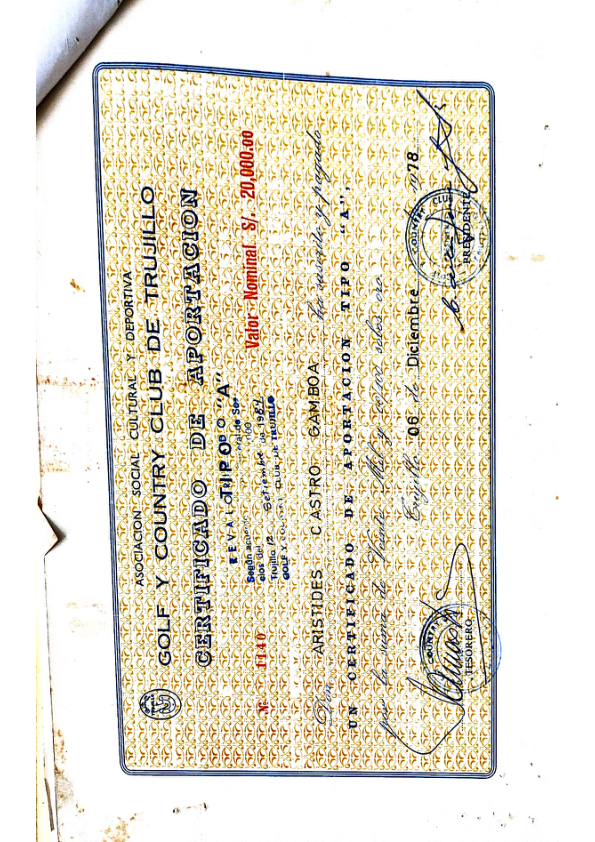 ASOCIACION SOCIAL CULTURAL Y DEPORTIVA
GOLF Y COUNTRY CLUB DE TRUJILLO
CERTIFICADO DE APORTACION
TIPO "A"
REVALO
Según acuerdo
Trujillo 12 Setiembre de 1984
GOLF Y COUNTRY CLUB DE TRUJILLO
Nº 1140
Valor Nominal S/. 20,000.00
Don ARISTIDES CASTRO GAMBOA ha suscrito y pagado
UN CERTIFICADO DE APORTACION TIPO "A",
por la suma de Veinte Mil y 00/00 soles oro.
Trujillo 06 de Diciembre 1978
COUNTRY
TESORERO
COUNTRY CLUB
PRESIDENTE